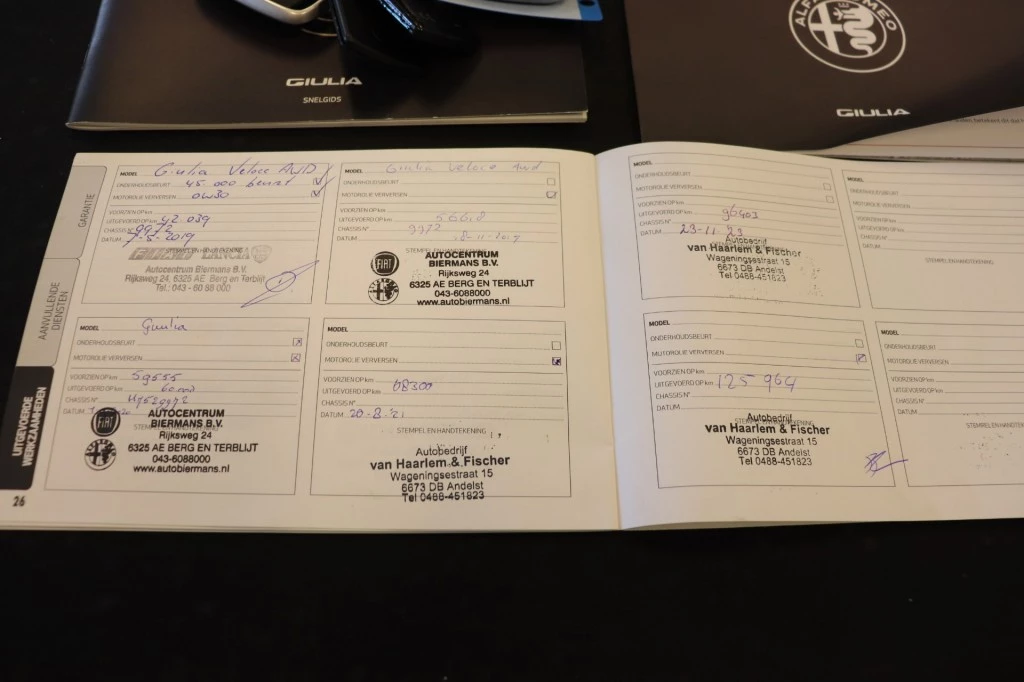 GIULIA
SNELGIDS
ALFA ROMEO
GIULIA
GARANTIE
AANVULLENDE
DIENSTEN
UITGEVOERDE
WERKZAAMHEDEN
26
MODEL Giulia Veloce AWD
ONDERHOUDSBEURT 45.000 beurt
MOTOROLIE VERVERSEN 0W30
VOORZIEN OP km
UITGEVOERD OP km 42 039
CHASSIS N° 9972
DATUM 7-5-2019
LANCIA
Autocentrum Biermans B.V.
Rijksweg 24, 6325 AE Berg en Terblijt
Tel.: 043 - 60 88 000
MODEL Giulia Veloce Awd
ONDERHOUDSBEURT
MOTOROLIE VERVERSEN
VOORZIEN OP km
UITGEVOERD OP km
CHASSIS N° 9972
DATUM
STEMPEL EN HANDTEKENING
FIAT
AUTOCENTRUM
BIERMANS B.V.
Rijksweg 24
6325 AE BERG EN TERBLIJT
043-6088000
www.autobiermans.nl
MODEL Giulia
ONDERHOUDSBEURT
MOTOROLIE VERVERSEN
VOORZIEN OP km 59555
UITGEVOERD OP km
CHASSIS N°
DATUM
FIAT
AUTOCENTRUM
BIERMANS B.V.
Rijksweg 24
6325 AE BERG EN TERBLIJT
043-6088000
www.autobiermans.nl
MODEL
ONDERHOUDSBEURT
MOTOROLIE VERVERSEN
VOORZIEN OP km
UITGEVOERD OP km 68300
CHASSIS N°
DATUM 20-8-21
STEMPEL EN HANDTEKENING
Autobedrijf
van Haarlem & Fischer
Wageningsestraat 15
6673 DB Andelst
Tel 0488-451823
MODEL
ONDERHOUDSBEURT
MOTOROLIE VERVERSEN
VOORZIEN OP km
UITGEVOERD OP km 96403
CHASSIS N°
DATUM 23-11-23
Autobedrijf
van Haarlem & Fischer
Wageningsestraat 15
6673 DB Andelst
Tel 0488-451823
MODEL
ONDERHOUDSBEURT
MOTOROLIE VERVERSEN
VOORZIEN OP km
UITGEVOERD OP km
CHASSIS N°
DATUM
STEMPEL EN HANDTEKENING
MODEL
ONDERHOUDSBEURT
MOTOROLIE VERVERSEN
VOORZIEN OP km
UITGEVOERD OP km 125 964
CHASSIS N°
DATUM
Autobedrijf
van Haarlem & Fischer
Wageningsestraat 15
6673 DB Andelst
Tel 0488-451823
MODEL
ONDERHOUDSBEURT
MOTOROLIE VERVERSEN
VOORZIEN OP km
UITGEVOERD OP km
CHASSIS N°
DATUM
STEMPEL EN HANDTEKENING